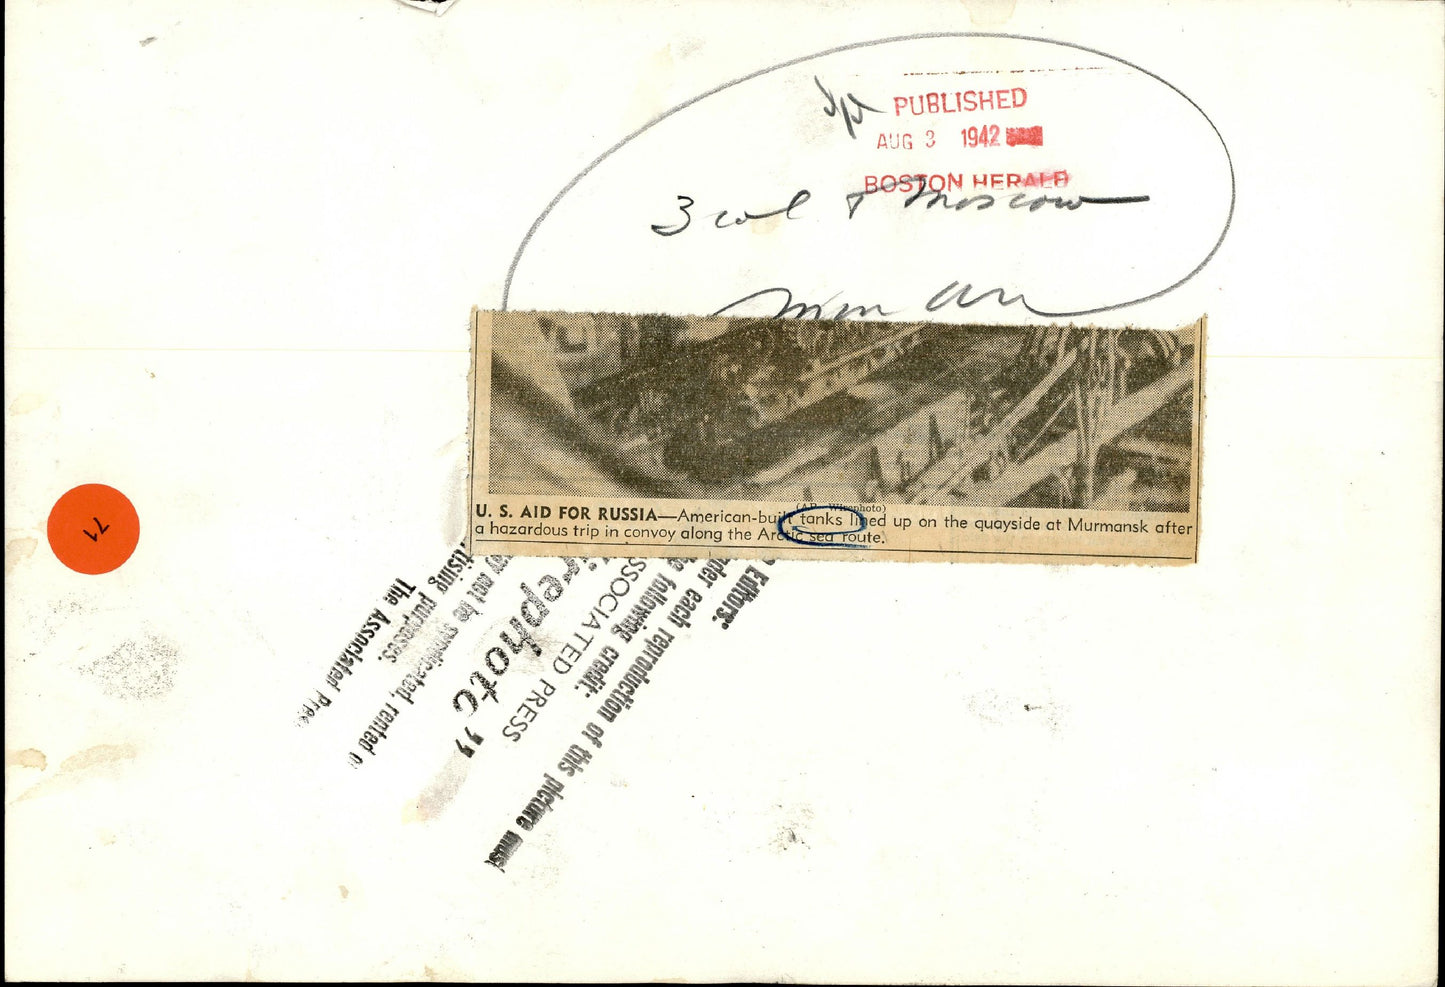 PUBLISHED
AUG 3 1942
BOSTON HERALD
3 col Moscow
(AP Wirephoto)
U. S. AID FOR RUSSIA—American-built tanks lined up on the quayside at Murmansk after
a hazardous trip in convoy along the Arctic sea route.
71
Editors:
under each reproduction of this picture must
the following credit:
ASSOCIATED PRESS
Wirephoto"
may not be syndicated, rented
purposes.
The Associated Press